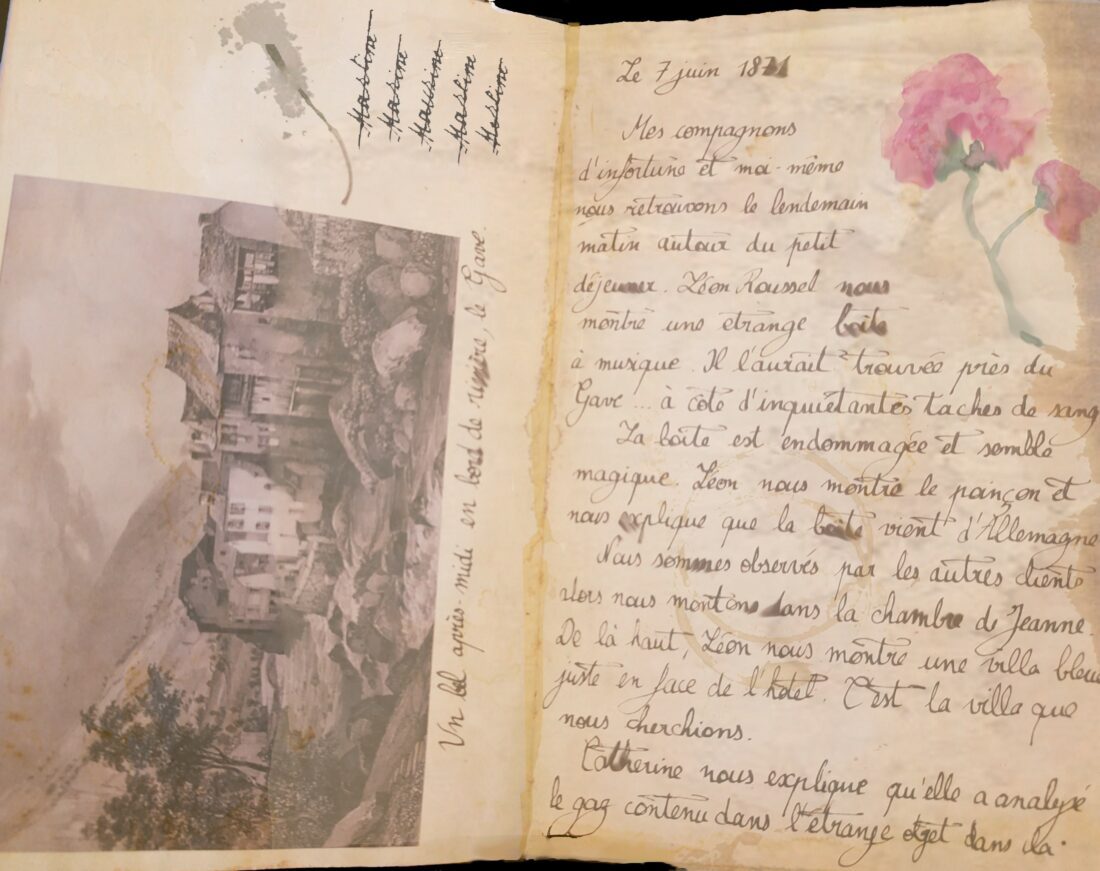 Un bel après-midi en bord de rivière, le Gave.
Le 7 juin
Mes compagnons
d'infortune et moi-même
nous retrouvons le lendemain
matin autour du petit
déjeuner. Léon Roussel nous
montre une étrange boîte
à musique. Il l'aurait trouvée près du
Gave ... à côté d'inquiétantes taches de sang
La boîte est endommagée et semble
magique. Léon nous montre le poinçon et
nous explique que la boîte vient d'Allemagne
Nous sommes observés par les autres clients
alors nous montons dans la chambre de Jeanne.
De là haut, Léon nous montre une villa bleue
juste en face de l'hôtel. C'est la villa que
nous cherchions.
Catherine nous explique qu'elle a analysé
le gaz contenu dans l'étrange objet dans la